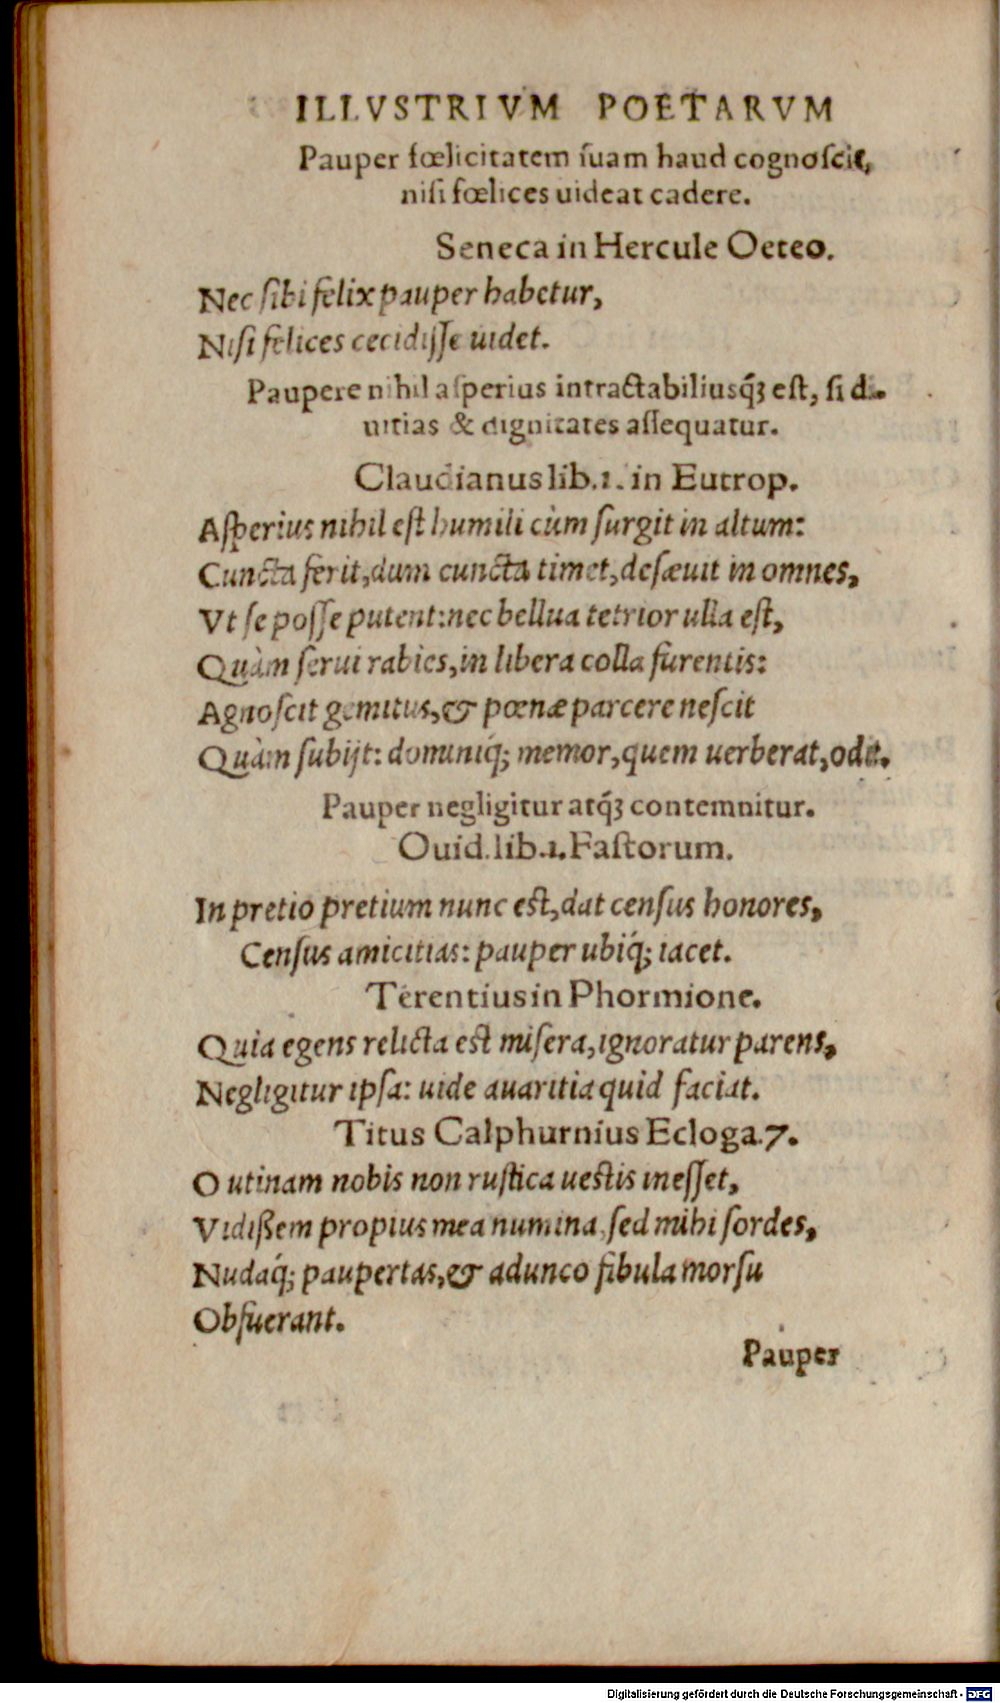 ILLVSTRIVM POETARVM
Pauper fœlicitatem ſuam haud cognoſcit,
niſi fœlices uideat cadere.
Seneca in Hercule Oeteo.
Nec ſibi felix pauper habetur,
Niſi felices cecidiſſe uidet.
Paupere nihil aſperius intractabiliusq́ꝫ eſt, ſi di-
uitias & dignitates aſſequatur.
Claudianus lib.1. in Eutrop.
Aſperius nihil eſt humili cùm ſurgit in altum:
Cuncta ferit,dum cuncta timet,deſæuit in omnes,
Vt ſe poſſe putent:nec bellua tetrior ulla eſt,
Quàm ſerui rabies,in libera colla furentis:
Agnoſcit gemitus,& pœnæ parcere neſcit
Quàm ſubijt: dominiq́; memor,quem uerberat,odit.
Pauper negligitur atq́ꝫ contemnitur.
Ouid.lib.1.Faſtorum.
In pretio pretium nunc eſt,dat cenſus honores,
Cenſus amicitias: pauper ubiq́; iacet.
Terentius in Phormione.
Quia egens relicta eſt miſera,ignoratur parens,
Negligitur ipſa: uide auaritia quid faciat.
Titus Calphurnius Ecloga.7.
O utinam nobis non ruſtica ueſtis ineſſet,
Vidißem propius mea numina,ſed mihi ſordes,
Nudaq́; paupertas,& adunco fibula morſu
Obfuerant.
Pauper
Digitalisierung gefördert durch die Deutsche Forschungsgemeinschaft - DFG